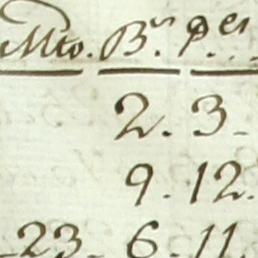 Mto. Bs. Pes.
2. 3.
9. 12.
23. 6. 11.